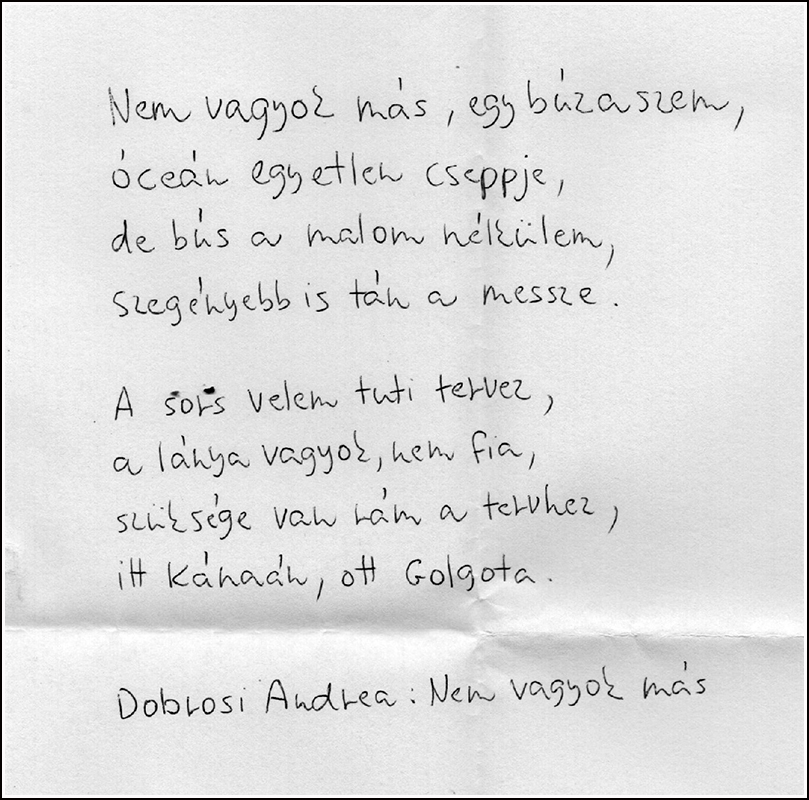 Nem vagyok más, egy búzaszem,
óceán egyetlen cseppje,
de bús a malom nélkülem,
szegényebb is tán a messze.
A sors velem tuti tervez,
a lánya vagyok, nem fia,
szüksége van rám a tervhez,
itt Kánaán, ott Golgota.
Dobrosi Andrea: Nem vagyok más